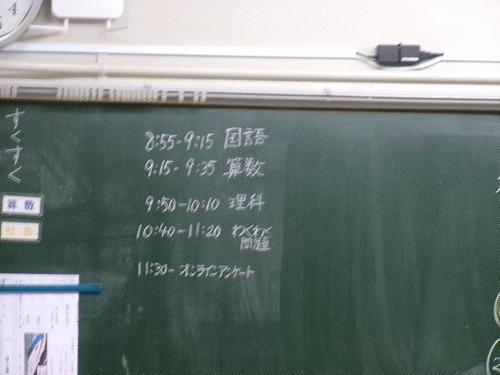 すくすく
算数
社会
8:55-9:15 国語
9:15-9:35 算数
9:50-10:10 理科
10:40-11:20 わくわく
問題
11:30- オンラインアンケート
4